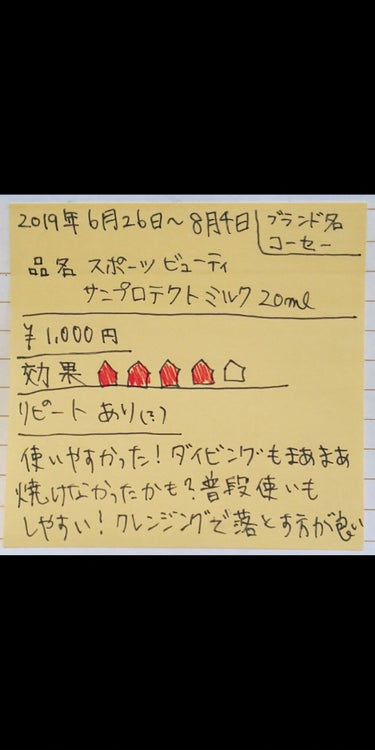 2019年6月26日~8月4日
ブランド名
コーセー
品名 スポーツ ビューティ
サンプロテクト ミルク 20ml
¥1,000円
効果
リピート あり(?)
使いやすかった!ダイビングもまあまあ
焼けなかったかも?普段使いも
しやすい!クレンジングで落とす方が良い